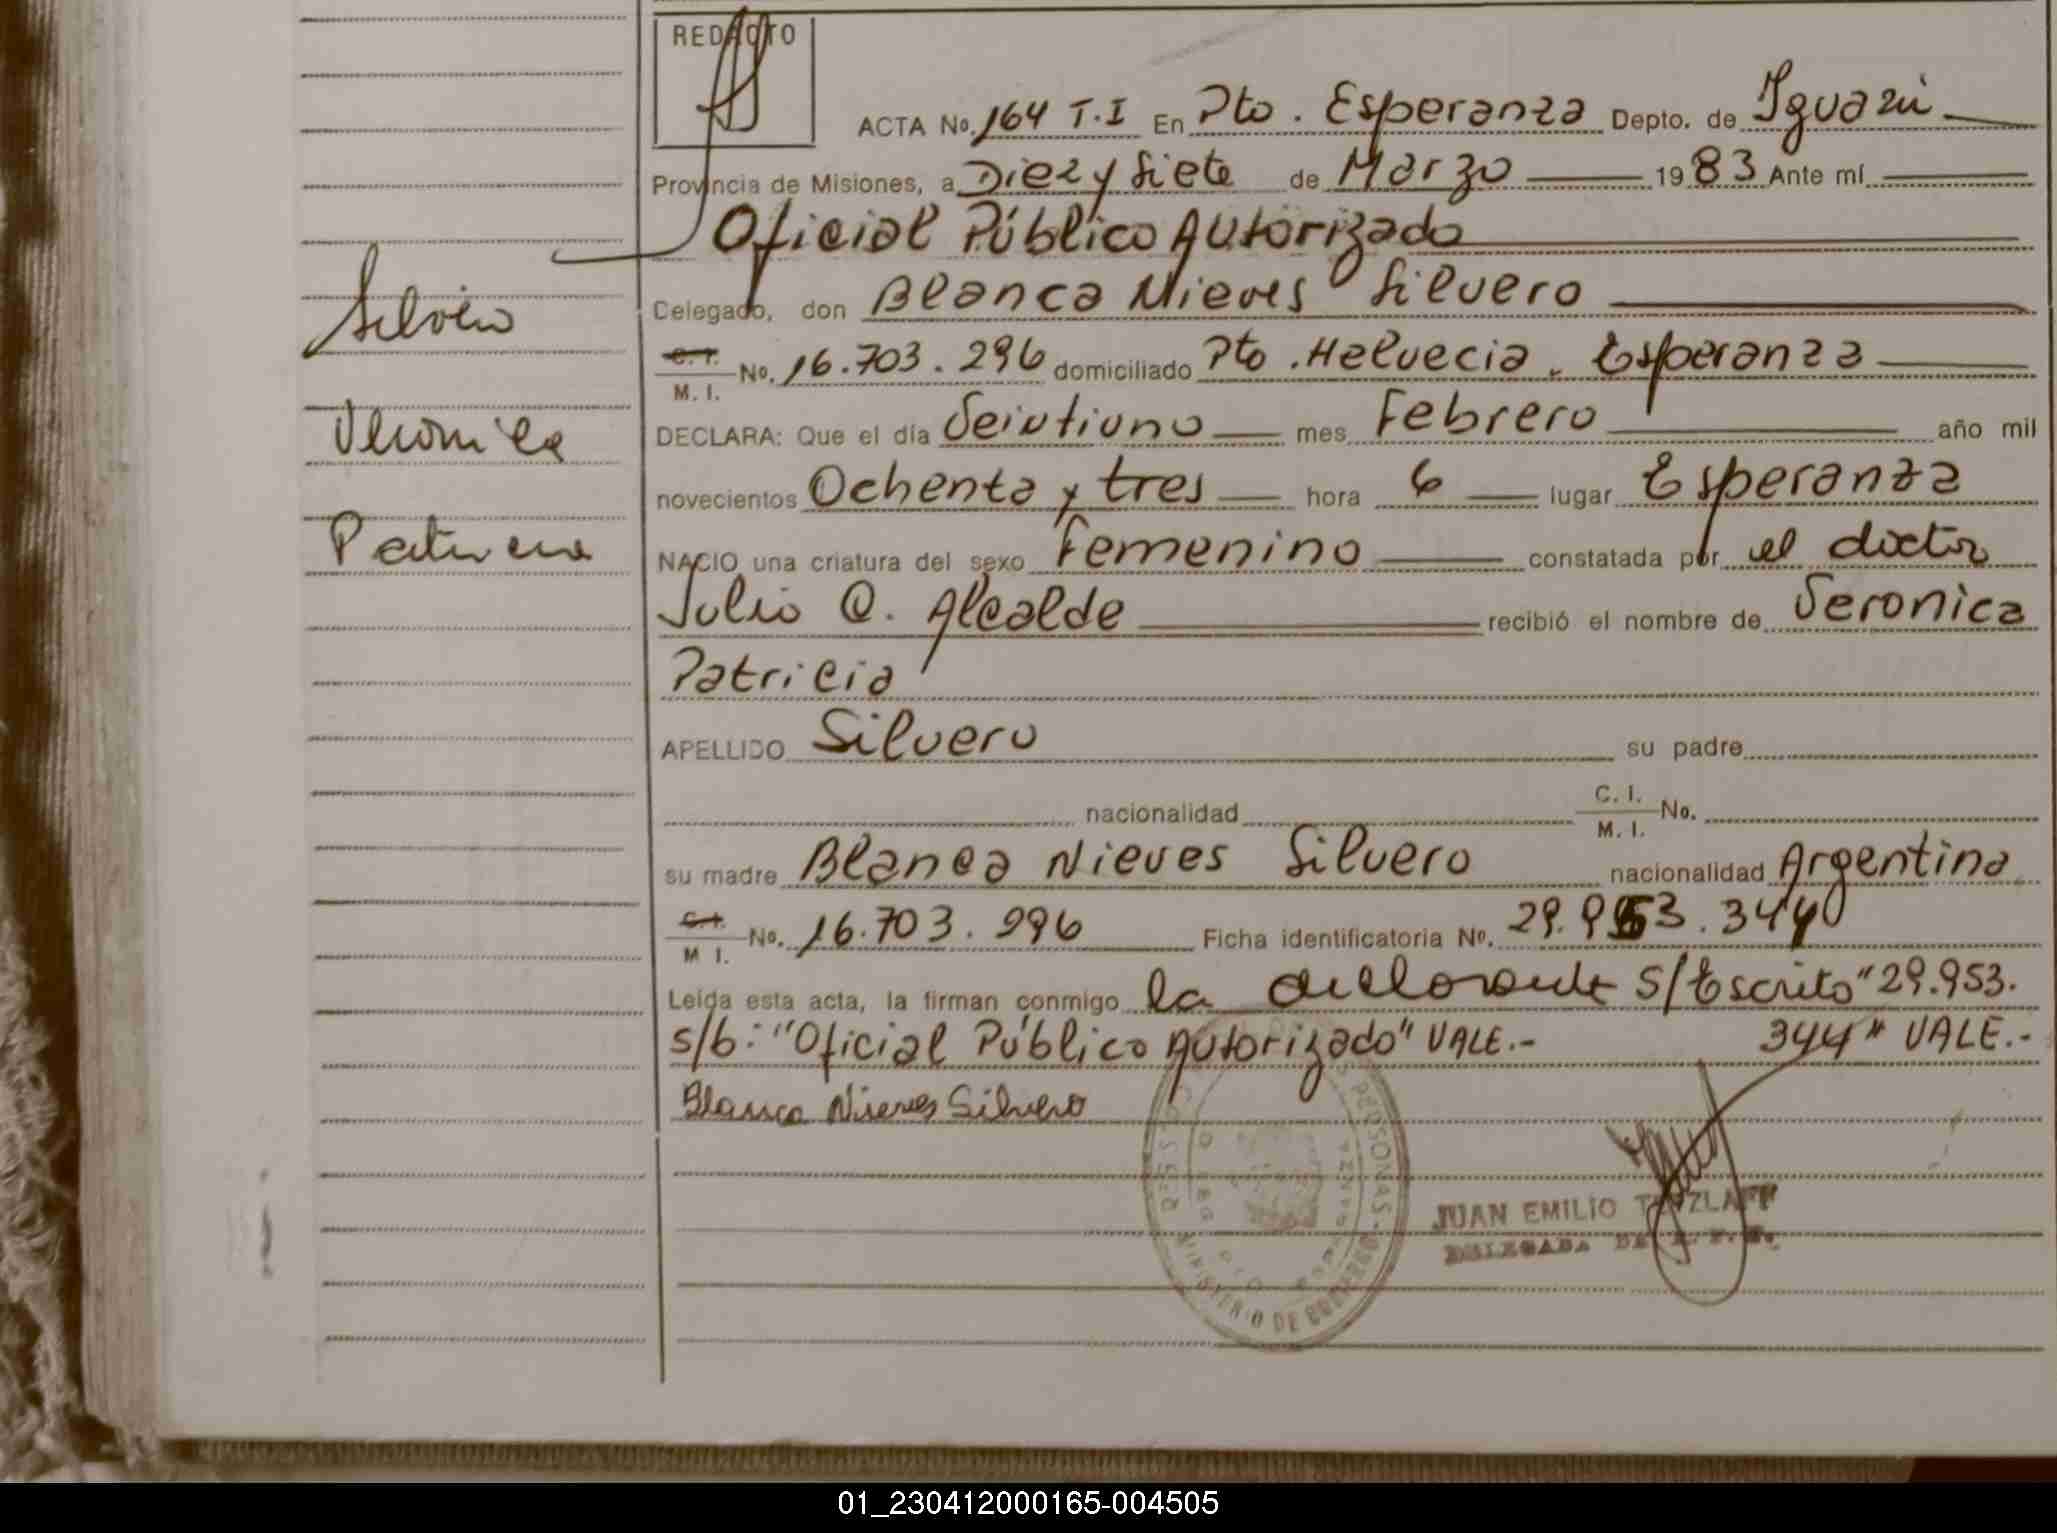 REDACTO
ACTA No. 164 T.I En Pto. Esperanza Depto. de Iguazú
Provincia de Misiones, a Diez y Siete de Marzo 1983 Ante mí
Oficial Público Autorizado
Celegado, don Blanca Nieves Silvero
C. I. M. I. No. 16.703.296 domiciliado Pto. Helvecia. Esperanza
DECLARA: Que el día Veintiuno mes Febrero año mil
novecientos Ochenta y tres hora 6 lugar Esperanza
NACIO una criatura del sexo Femenino constatada por el doctor
Julio Q. Alcalde recibió el nombre de Veronica
Patricia
APELLIDO Silvero su padre
nacionalidad C. I. M. I. No.
su madre Blanca Nieves Silvero nacionalidad Argentina
C. I. M I. No. 16.703.296 Ficha identificatoria No. 29.953.344
Leída esta acta, la firman conmigo la S/Escrito "29.953.
s/b: "Oficial Público Autorizado" VALE.- 344" VALE.-
Blanca Nieves Silvero
JUAN EMILIO
PERSONAS - MINISTERIO DE GOBIERNO
Silvero
Veronica
Patricia
01_230412000165-004505